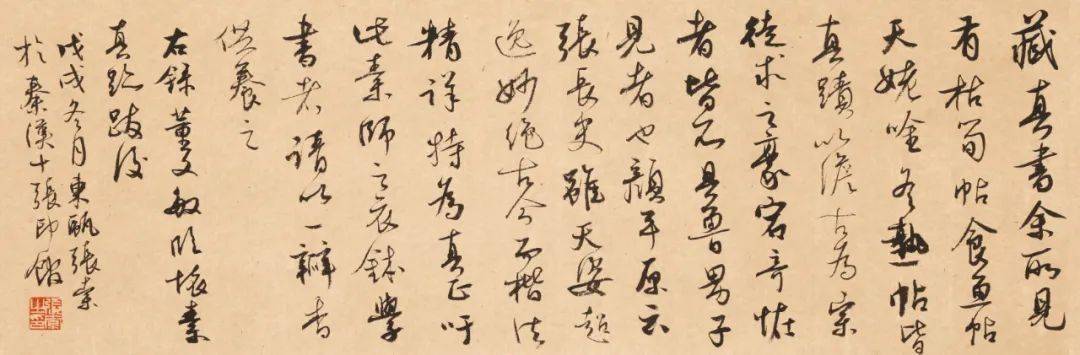 藏真書余所見
有枯筍帖食魚帖
天姥吟冬熱帖皆
真蹟以澹古為宗
徒求之豪宕奇怪
者皆不具魯男子
見者也顏平原云
張長史雖天姿超
逸妙絕古今而楷法
精詳特為真正吁
此素師之衣鉢學
書者請以一瓣香
供養之
右錄董文敏臨懷素
真跡跋後
戊戌冬月東甌張索
於秦漢十張印館